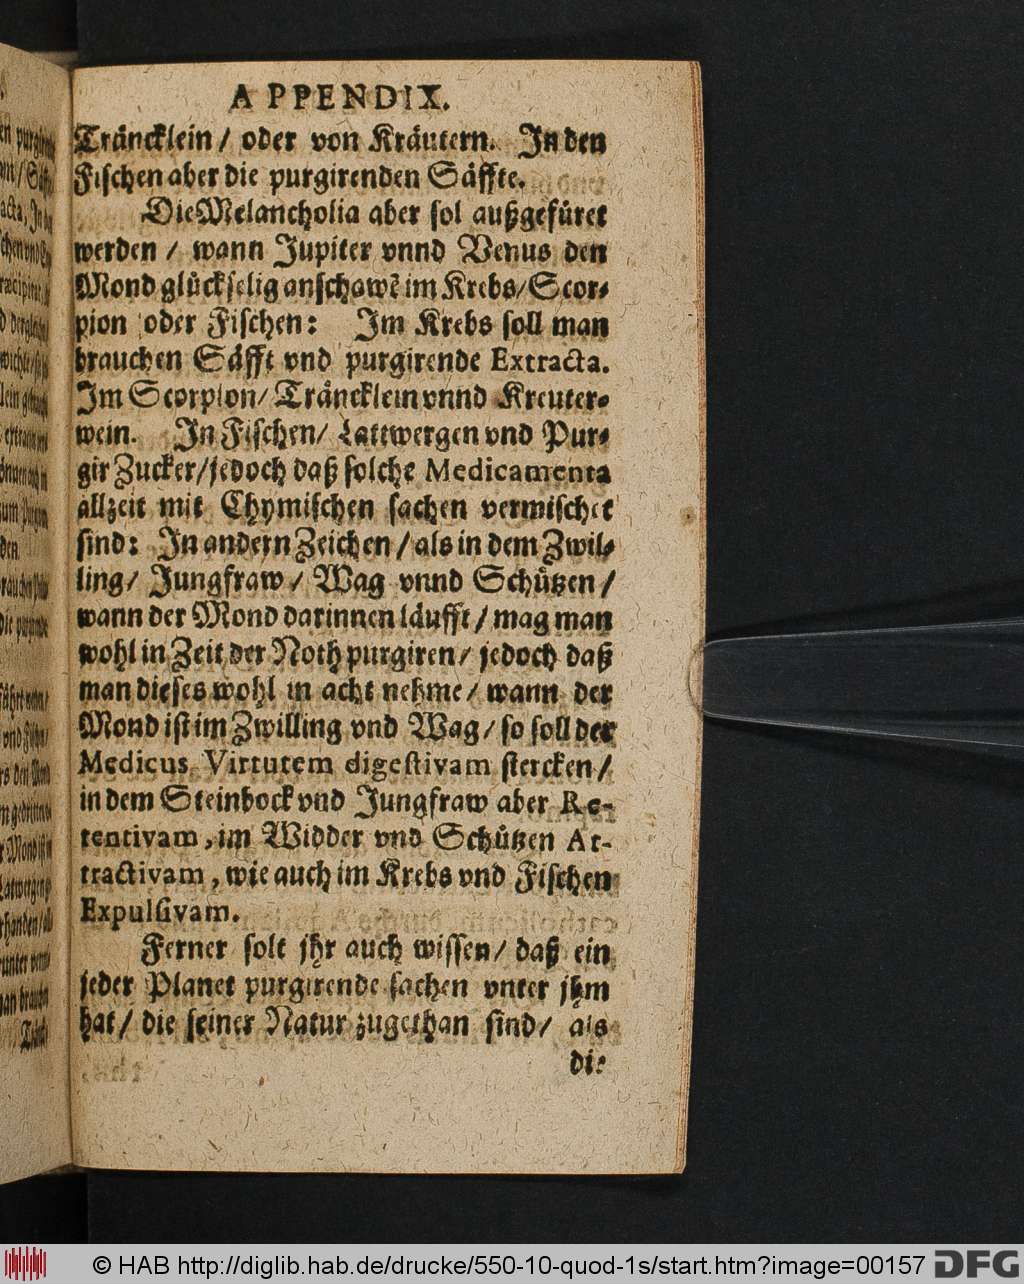 APPENDIX.
Träncklein / oder von Kräutern. In den
Fischen aber die purgirenden Säffte.
Die Melancholia aber sol außgefüret
werden / wann Jupiter vnnd Venus den
Mond glückselig anschawẽ im Krebs / Scor-
pion oder Fischen: Im Krebs soll man
brauchen Säfft vnd purgirende Extracta.
Im Scorpion / Träncklein vnnd Kreuter-
wein. In Fischen / Lattwergen vnd Pur-
gir Zucker / jedoch daß solche Medicamenta
allzeit mit Chymischen sachen vermischet
sind: In andern Zeichen / als in dem Zwil-
ling / Jungfraw / Wag vnnd Schützen /
wann der Mond darinnen läufft / mag man
wohl in Zeit der Noth purgiren / jedoch daß
man dieses wohl in acht nehme / wann der
Mond ist im Zwilling vnd Wag / so soll der
Medicus Virtutem digestivam stercken /
in dem Steinbock vnd Jungfraw aber Re-
tentivam, im Widder vnd Schützen At-
tractivam, wie auch im Krebs vnd Fischen
Expulsivam.
Ferner solt jhr auch wissen / daß ein
jeder Planet purgirende sachen vnter jhm
hat / die seiner Natur zugethan sind / als
die
© HAB http://diglib.hab.de/drucke/550-10-quod-1s/start.htm?image=00157 DFG